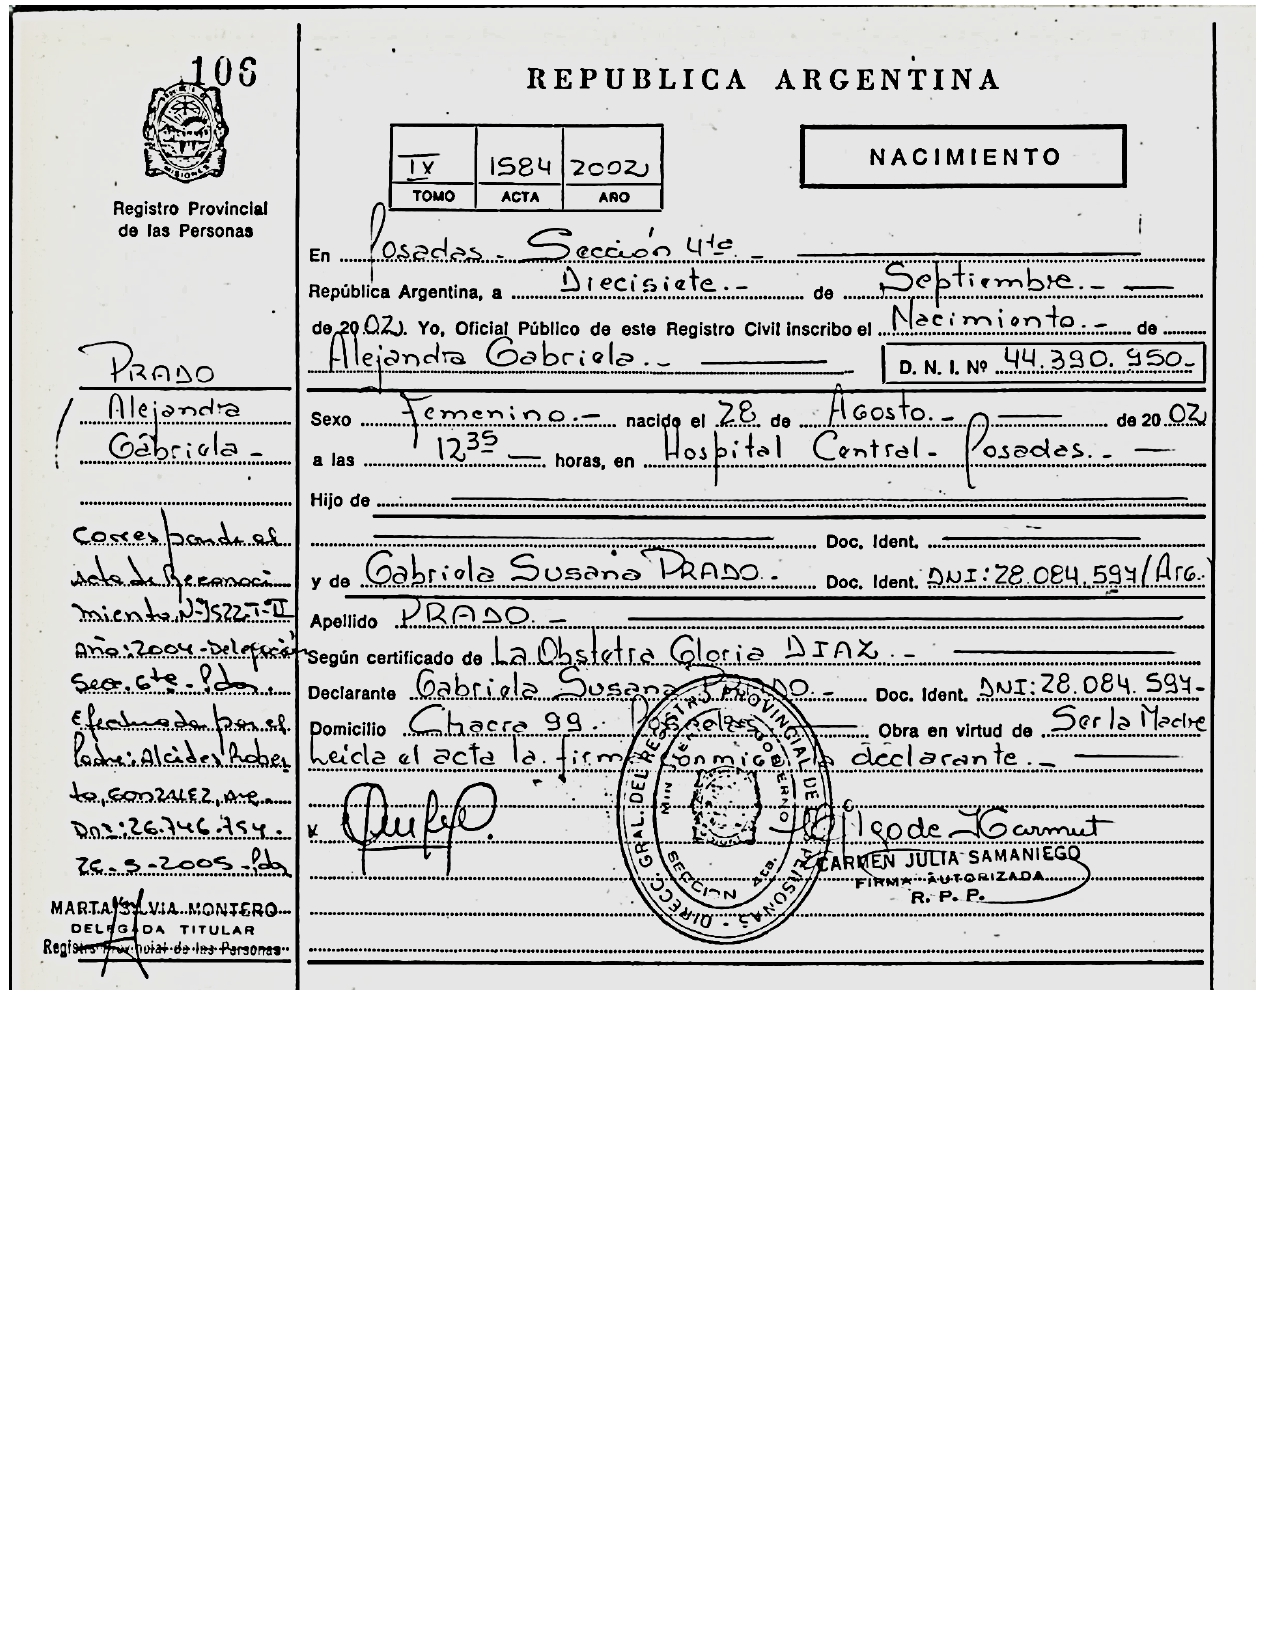 106
REPUBLICA ARGENTINA
NACIMIENTO
IX 1584 2002
TOMO ACTA AÑO
MISIONES
Registro Provincial
de las Personas
En Posadas - Sección 4ta. -
República Argentina, a Diecisiete. - de Septiembre. -
de 2002. Yo, Oficial Público de este Registro Civil inscribo el Nacimiento. - de
Alejandra Gabriela. -
D. N. I. Nº 44.390.950-
Sexo Femenino. - nacido el 28 de Agosto. - de 2002
a las 12 35 horas, en Hospital Central - Posadas. -
Hijo de
Doc. Ident.
y de Gabriela Susana PRADO. - Doc. Ident. DNI: 28.084.594/Arg.
Apellido PRADO. -
Según certificado de La Obstetra Gloria DIAZ. -
Declarante Gabriela Susana PRADO. - Doc. Ident. DNI: 28.084.594-
Domicilio Chacra 99. Posadas Obra en virtud de Ser la Madre
Leida el acta la firma conmigo la declarante. -
CARMEN JULIA SAMANIEGO
FIRMA AUTORIZADA
R. P. P.
DIRECC. GRAL. DEL REGISTRO PROVINCIAL DE PERSONAS
SECCION 4ta.
PRADO
Alejandra
Gabriela -
Corresponde al
acta de Reconoci
miento Nº 1522-T-II
Año: 2004 - Delegación
Sec. 6ta - Pdas.
Efectuada por el
Padre: Alcides Rober
to, GONZALEZ, Arg.
DNI: 26.746.754.
26-5-2005 - Pdas
MARTA SILVIA MONTERO
DELEGADA TITULAR
Registro Provincial de las Personas